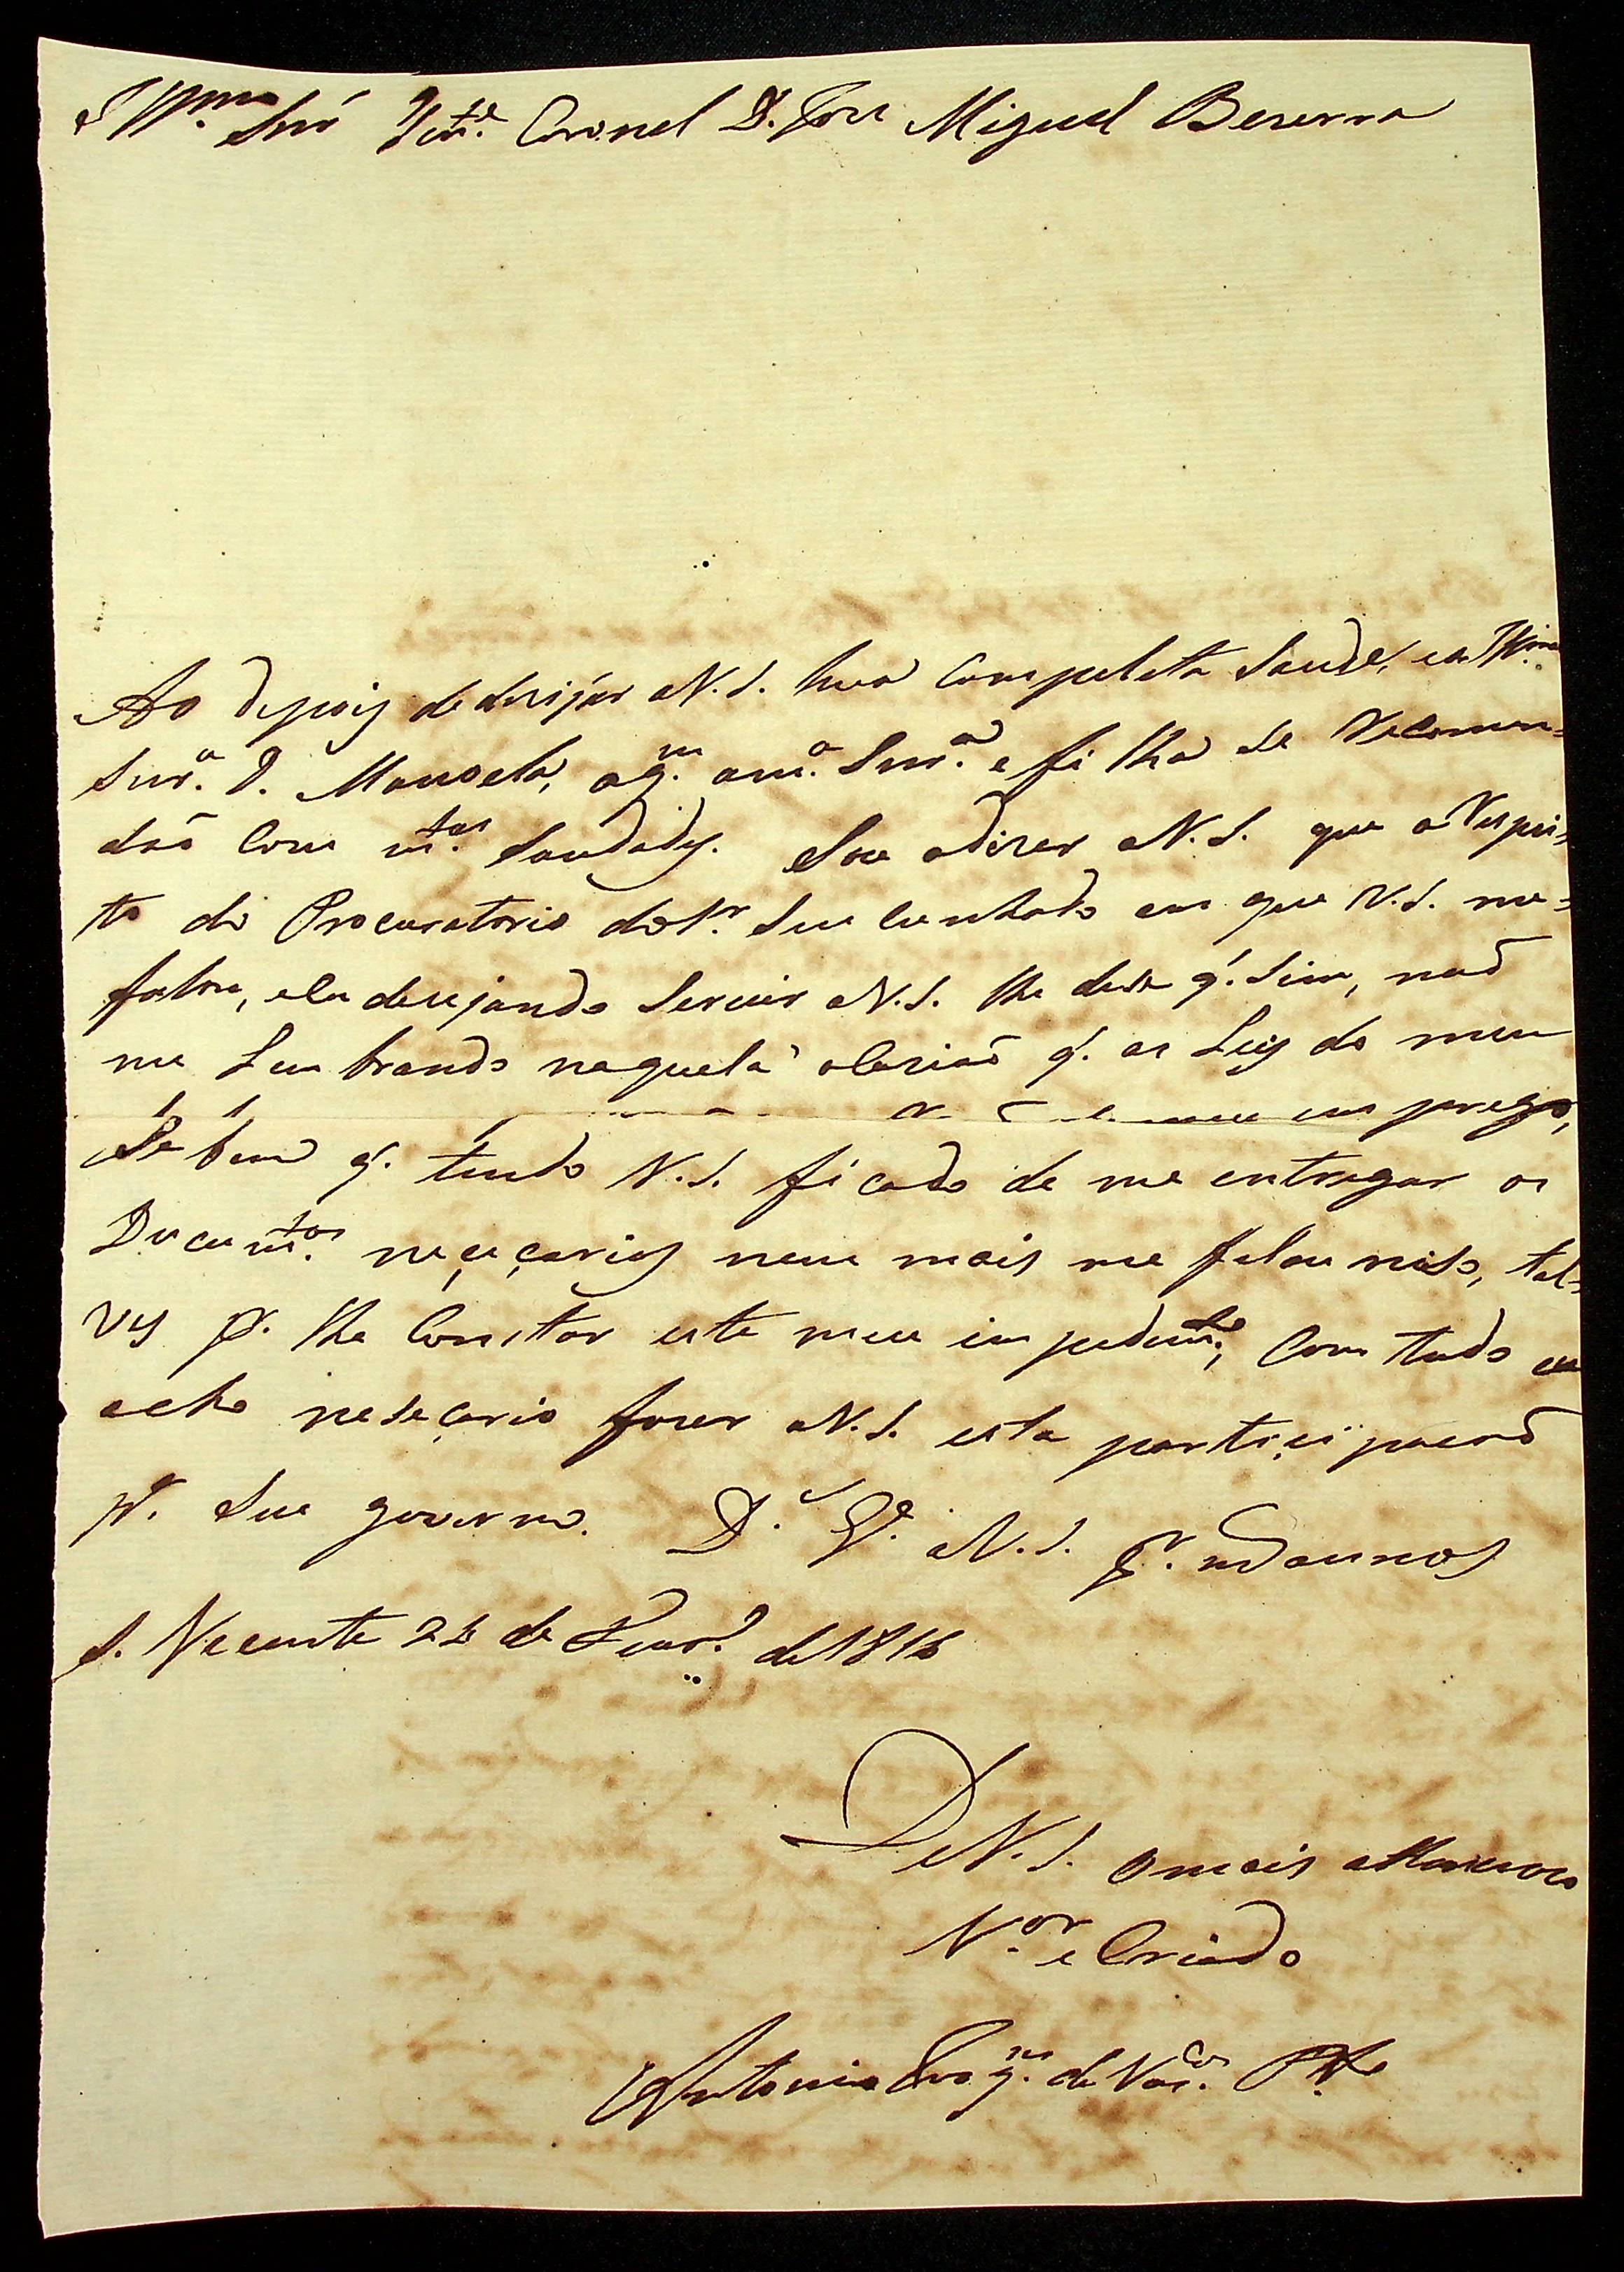 Illmo. Snr. Tene. Coronel D. Jose Miguel Beserra
Ao depois de desijar a V. S. hua Compeleta Saude, e a Illma.
Snra. D. Manoela, a qm. a ma. Snra. e filha se Recomen=
daõ Com mtas. Saudades. Sou a dizer a V. S. que a Respei=
to do Procuratorio do Sr. Seu Cunhado em que V. S. me=
falou, e Eu desejando Servir a V. S. lhe disse q'. Sim, naõ
me Lembrando naquela ocaziaõ q'. as Leis do meu
emprego,
Se bem q'. tendo V. S. ficado de me entregar os
Documtos. neçeçarios nem mais me falou niso, tal=
ves pr. lhe Constar este meu impedimto., Com tudo eu
acho neseçario fazer a V. S. esta partiçipacaõ
pa. Seu governo. Ds. Ge. a V. S. pr. ms. annos
S. Vecente 26 de Janro. de 1816
De V. S. o mais attencioso
Vor. e Criado
Antonio Joaqm. de